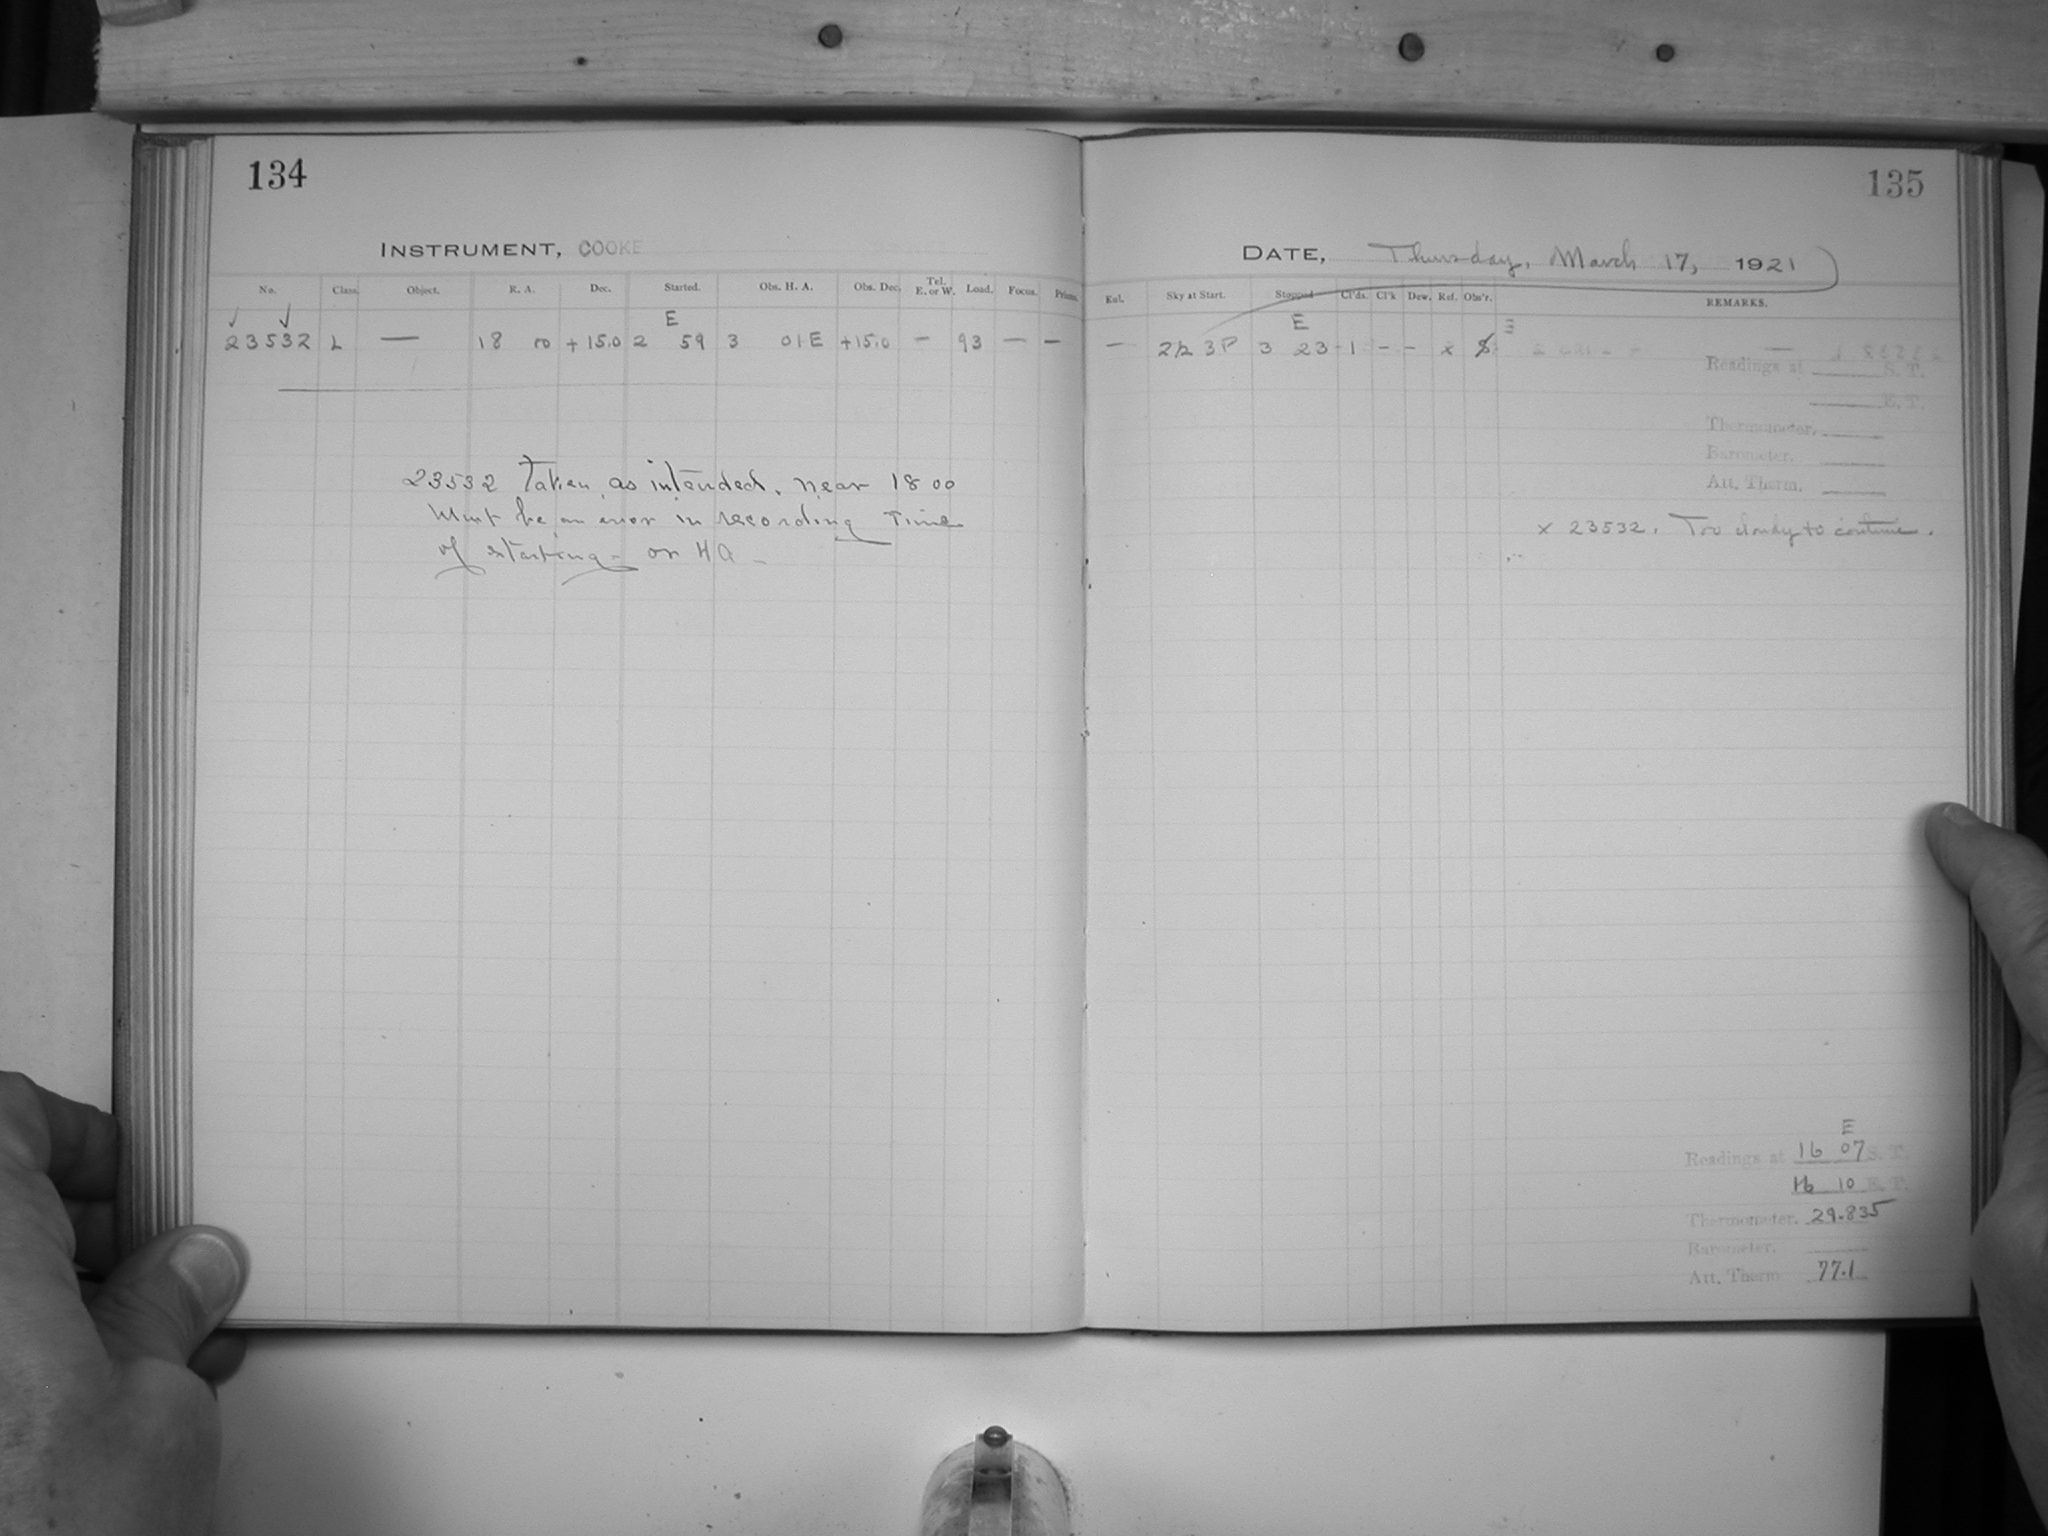 134
INSTRUMENT, COOKE
No. Class. Object. R. A. Dec. Started. Obs. H. A. Obs. Dec. Tel. E. or W. Load. Focus. Prisms.
E
23532 L — 18 00 +15.0 2 59 3 01E +15.0 — 93 — —
23532 Taken as intended, near 18 00
Must be an error in recording Time
of starting - or HA -
135
DATE, Thursday, March 17, 1921
Exl. Sky at Start. Stopped Cl'ds. Cl'k Dew. Ref. Obs'r. REMARKS.
E
— 3P 3 23 1 - - x
Readings at S. T.
E. T.
Thermometer.
Barometer.
Att. Therm.
x 23532. Too cloudy to continue.
E
Readings at 16 07 S. T.
16 10 E. T.
Thermometer. 29.835
Barometer.
Att. Therm 77.1